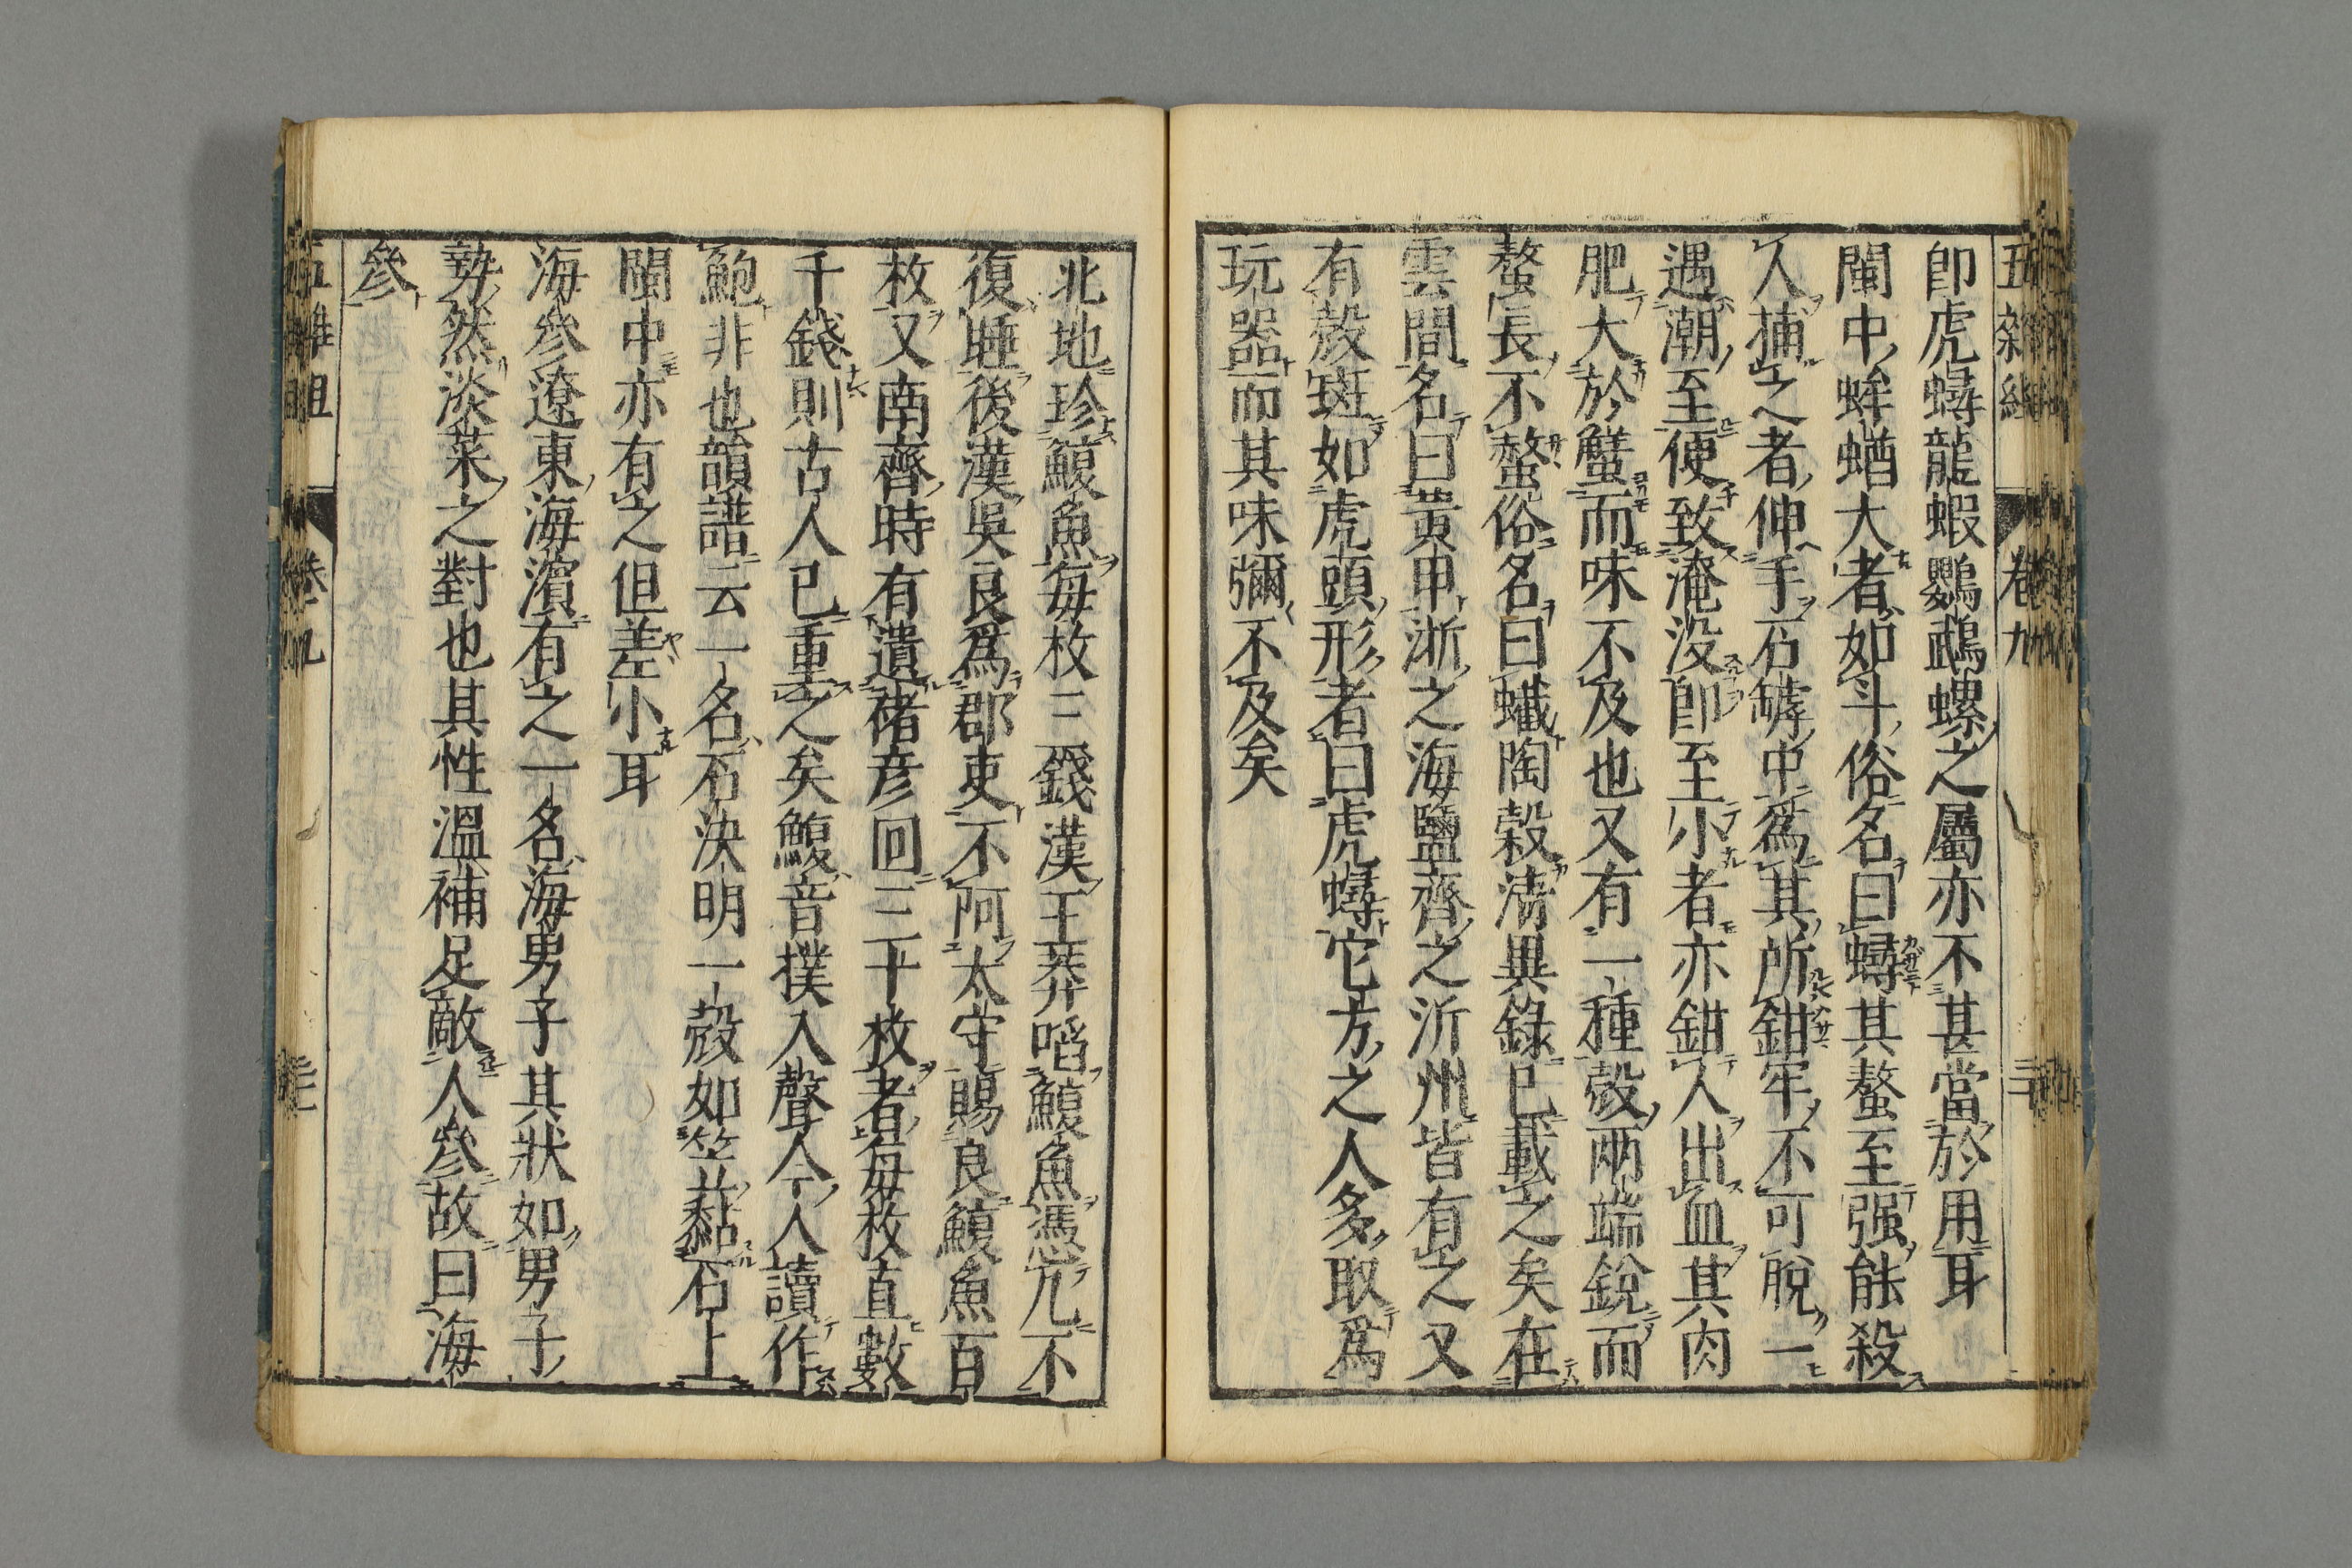 五雜組 卷九
卽虎蟳龍蝦鸚鵡螺之屬亦不甚當於用耳
閩中蛑蝤大者如斗俗名曰蟳其螯至强能殺
人捕之者伸手石罅中爲其所鉗牢不可脫一
遇潮至便致淹没卽至小者亦鉗人出血其肉
肥大於蟹而味不及也又有一種殼兩端銳而
螯長不螫俗名曰蠘陶穀清異錄已載之矣在
雲間名曰黃甲浙之海鹽齊之沂州皆有之又
有殼斑如虎頭形者曰虎蟳它方之人多取爲
玩器而其味彌不及矣
北地珍鰒魚每枚三錢漢王莽啗鰒魚憑几不
復睡後漢吳良爲郡吏不阿太守賜良鰒魚百
枚又南齊時有遺褚彦回三十枚者每枚直數
千錢則古人已重之矣鰒音撲入聲今人讀作
鮑非也韻譜云一名石決明一殼如笠黏石上
閩中亦有之但差小耳
海參遼東海濱有之一名海男子其狀如男子
勢然淡菜之對也其性溫補足敵人參故曰海
參
五雜組 卷九